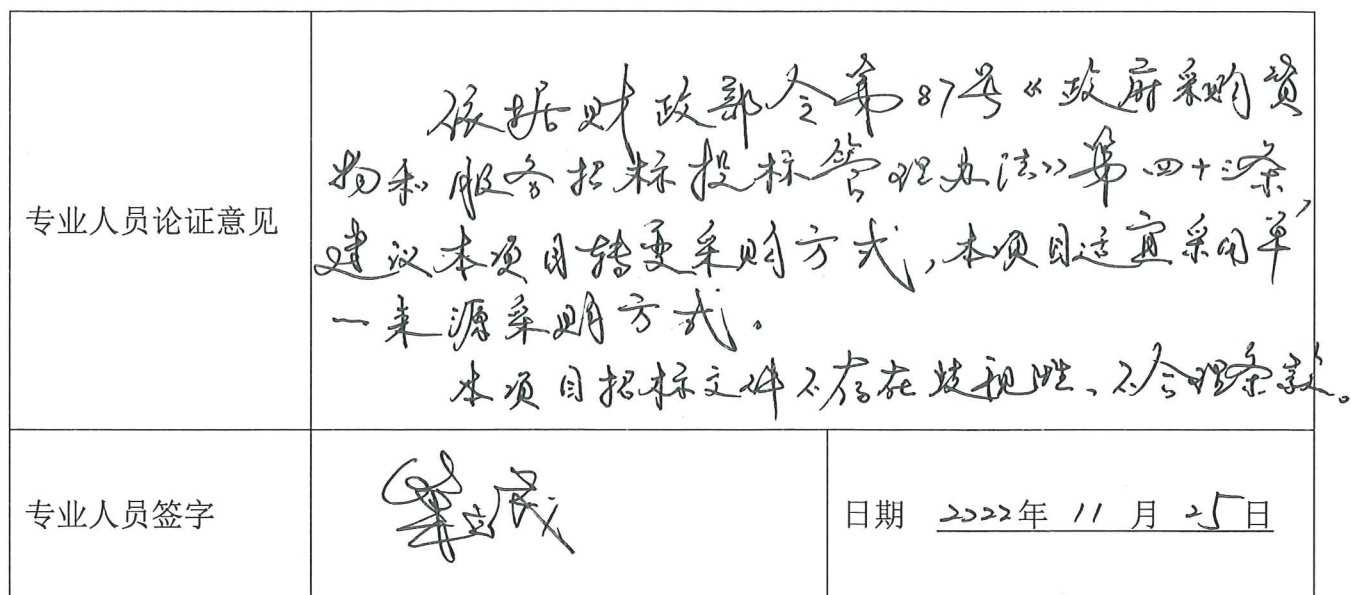 专业人员论证意见
依据财政部令第87号《政府采购货
物和服务招标投标管理办法》第四十三条,
建议本项目转变采购方式,本项目适宜采用单
一来源采购方式。
本项目招标文件不存在歧视性、不合理条款。
专业人员签字
日期 2022年 11 月 25日